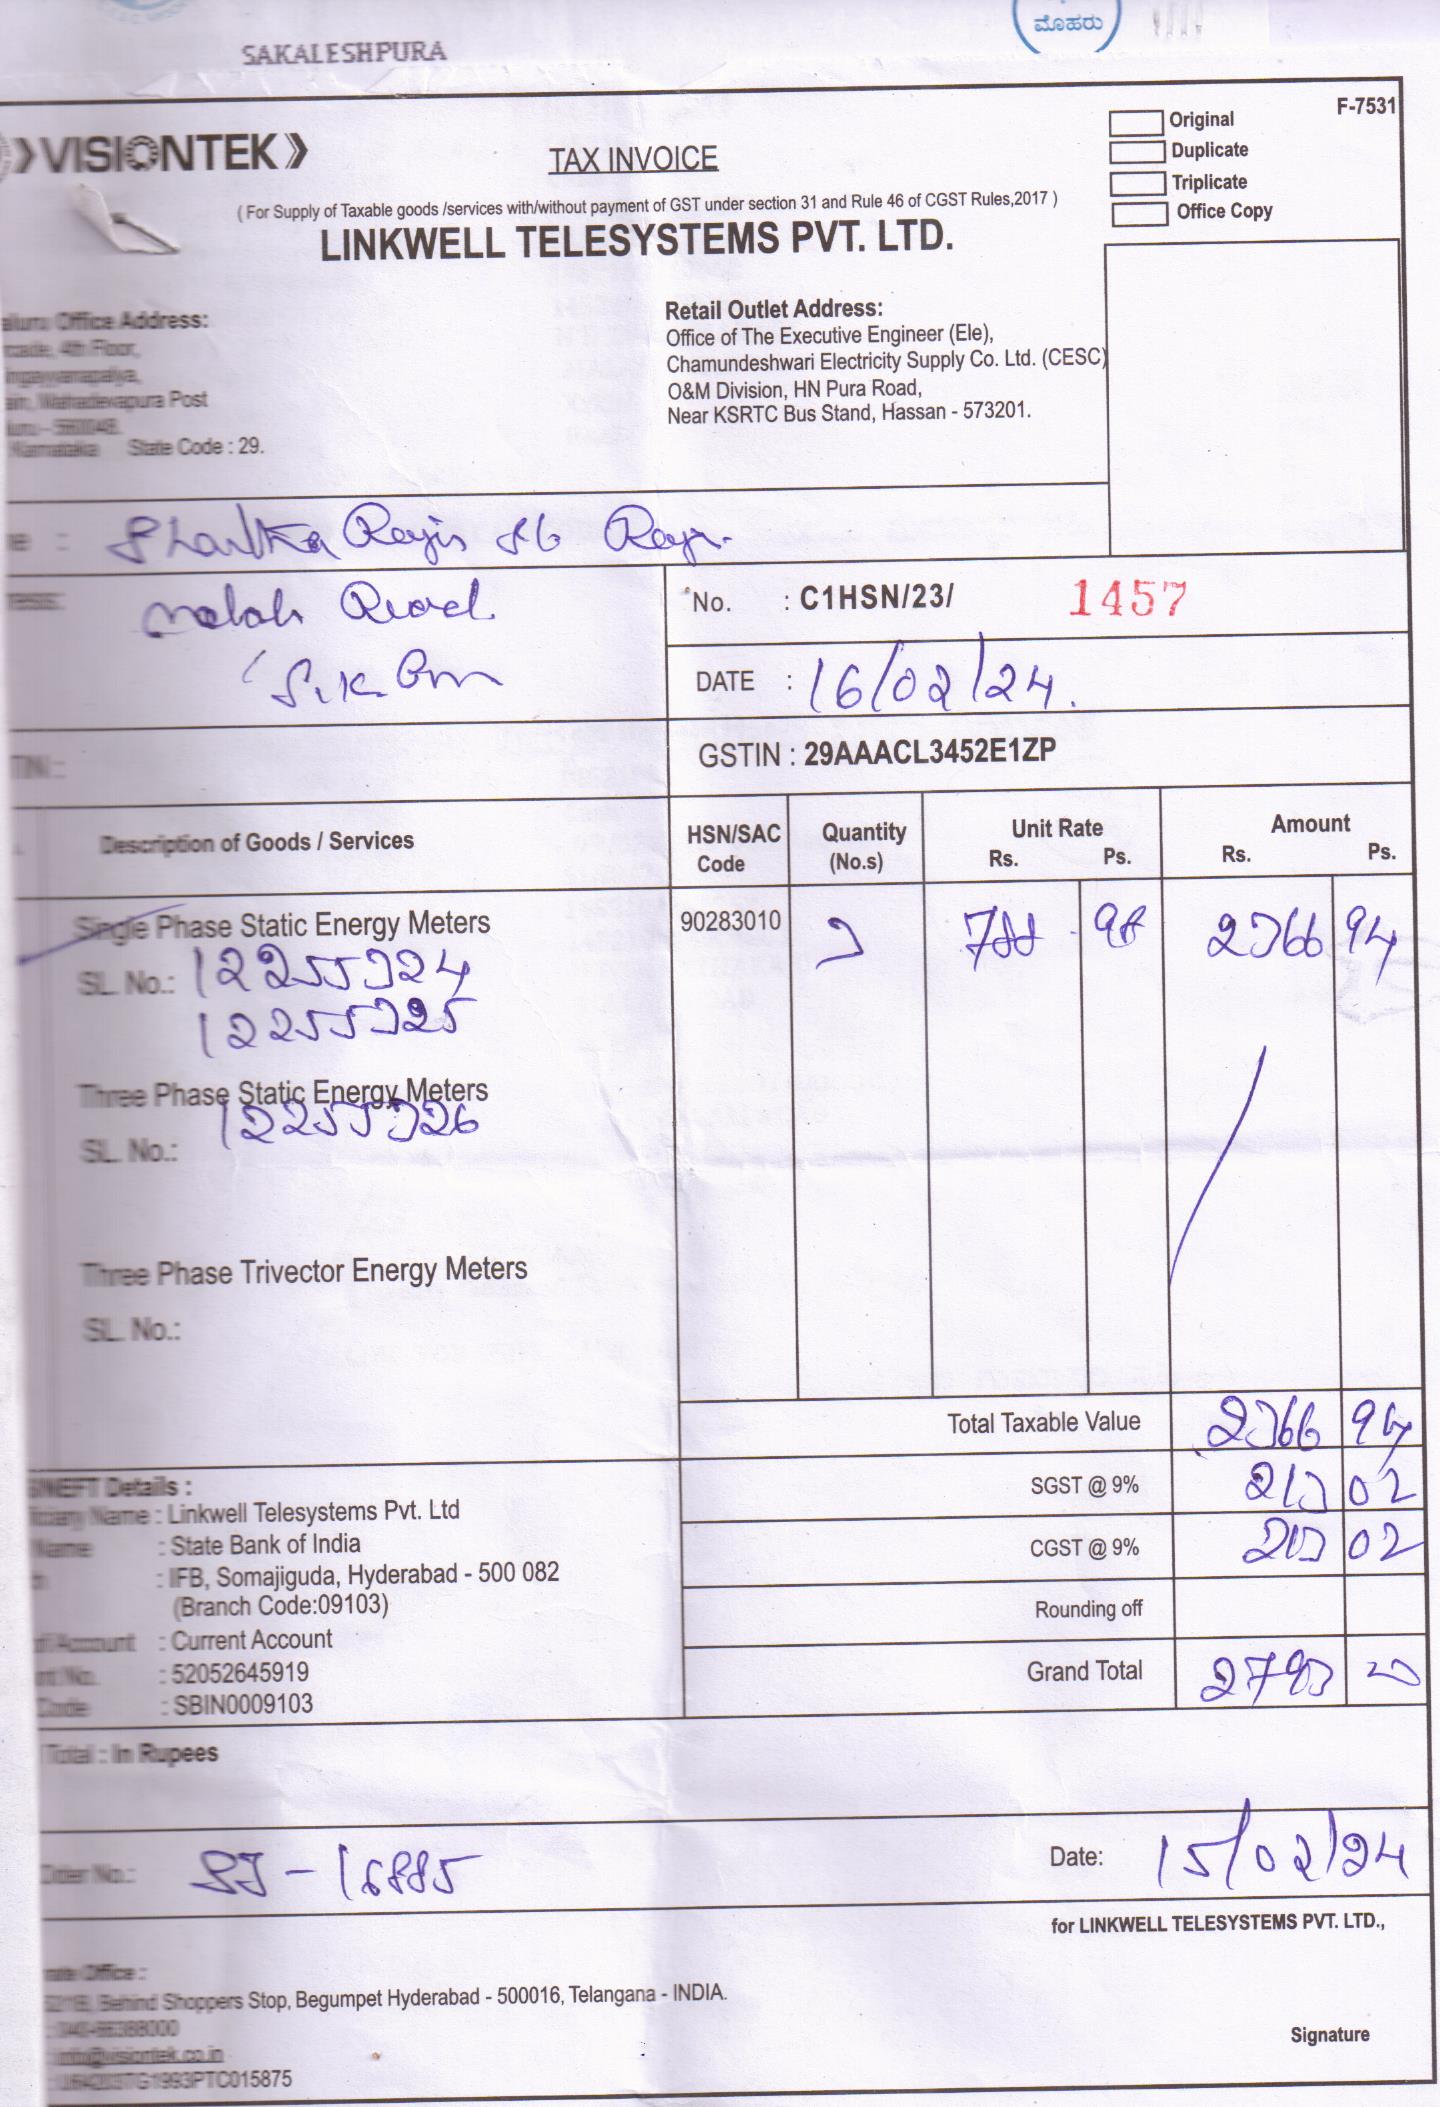 ಮೊಹರು
SAKALESHPURA
F-7531
VISIONTEK
TAX INVOICE
Original
Duplicate
Triplicate
Office Copy
( For Supply of Taxable goods /services with/without payment of GST under section 31 and Rule 46 of CGST Rules,2017 )
LINKWELL TELESYSTEMS PVT. LTD.
Office Address:
4th Floor,
Mahadevapura Post
560048.
Karnataka State Code : 29.
Retail Outlet Address:
Office of The Executive Engineer (Ele),
Chamundeshwari Electricity Supply Co. Ltd. (CESC)
O&M Division, HN Pura Road,
Near KSRTC Bus Stand, Hassan - 573201.
No. : C1HSN/23/ 1457
DATE : 16/02/24.
GSTIN : 29AAACL3452E1ZP
Description of Goods / Services
HSN/SAC Code
Quantity (No.s)
Unit Rate Rs. Ps.
Amount Rs. Ps.
Single Phase Static Energy Meters 90283010 3 788 - 98 2366 94
SL. No.: 12255324
12255325
Three Phase Static Energy Meters
12255326
SL. No.:
Three Phase Trivector Energy Meters
SL. No.:
Total Taxable Value 2366 94
SGST @ 9% 213 02
CGST @ 9% 213 02
Rounding off
Grand Total 2793
Details :
Name : Linkwell Telesystems Pvt. Ltd
Name : State Bank of India
: IFB, Somajiguda, Hyderabad - 500 082
(Branch Code:09103)
Account : Current Account
No. : 52052645919
Code : SBIN0009103
Total : In Rupees
Order No.: SJ - 16885
Date: 15/02/24
for LINKWELL TELESYSTEMS PVT. LTD.,
Office :
Behind Shoppers Stop, Begumpet Hyderabad - 500016, Telangana - INDIA.
040-66388000
info@visiontek.co.in
TG1993PTC015875
Signature